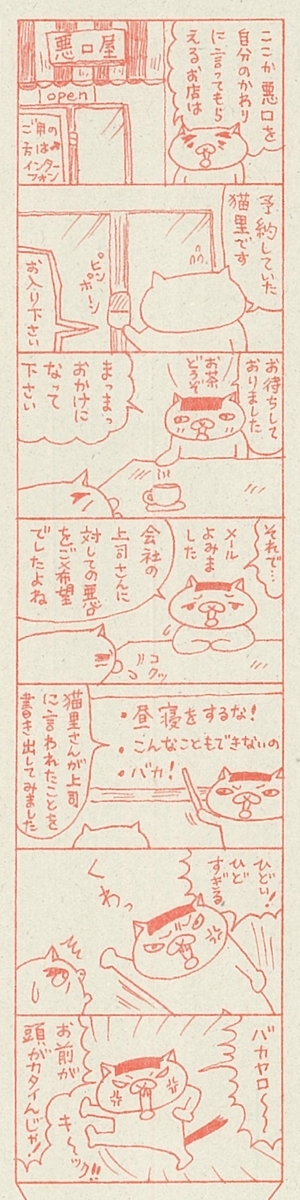 ここが悪口を
自分のかわり
に言ってもら
えるお店は
悪口屋
open
ご用の
方は
インター
フォン
予約していた
猫里です
ピン
ポーン
お入り下さい
お待ちして
おりました
お茶
どうぞ
まっまっ
おかけに
なって
下さい
それで…
メール
よみま
した
会社の
上司さんに
対しての悪口
をご希望
でしたよね
コクッ
・昼寝をするな!
・こんなこともできないの
・バカ!
猫里さんが上司
に言われたことを
書き出してみました
ひどい!
ひど
すぎる
くわっ
バカヤロ〜〜
お前が
頭がカタイんじゃ!
キ〜ック!!